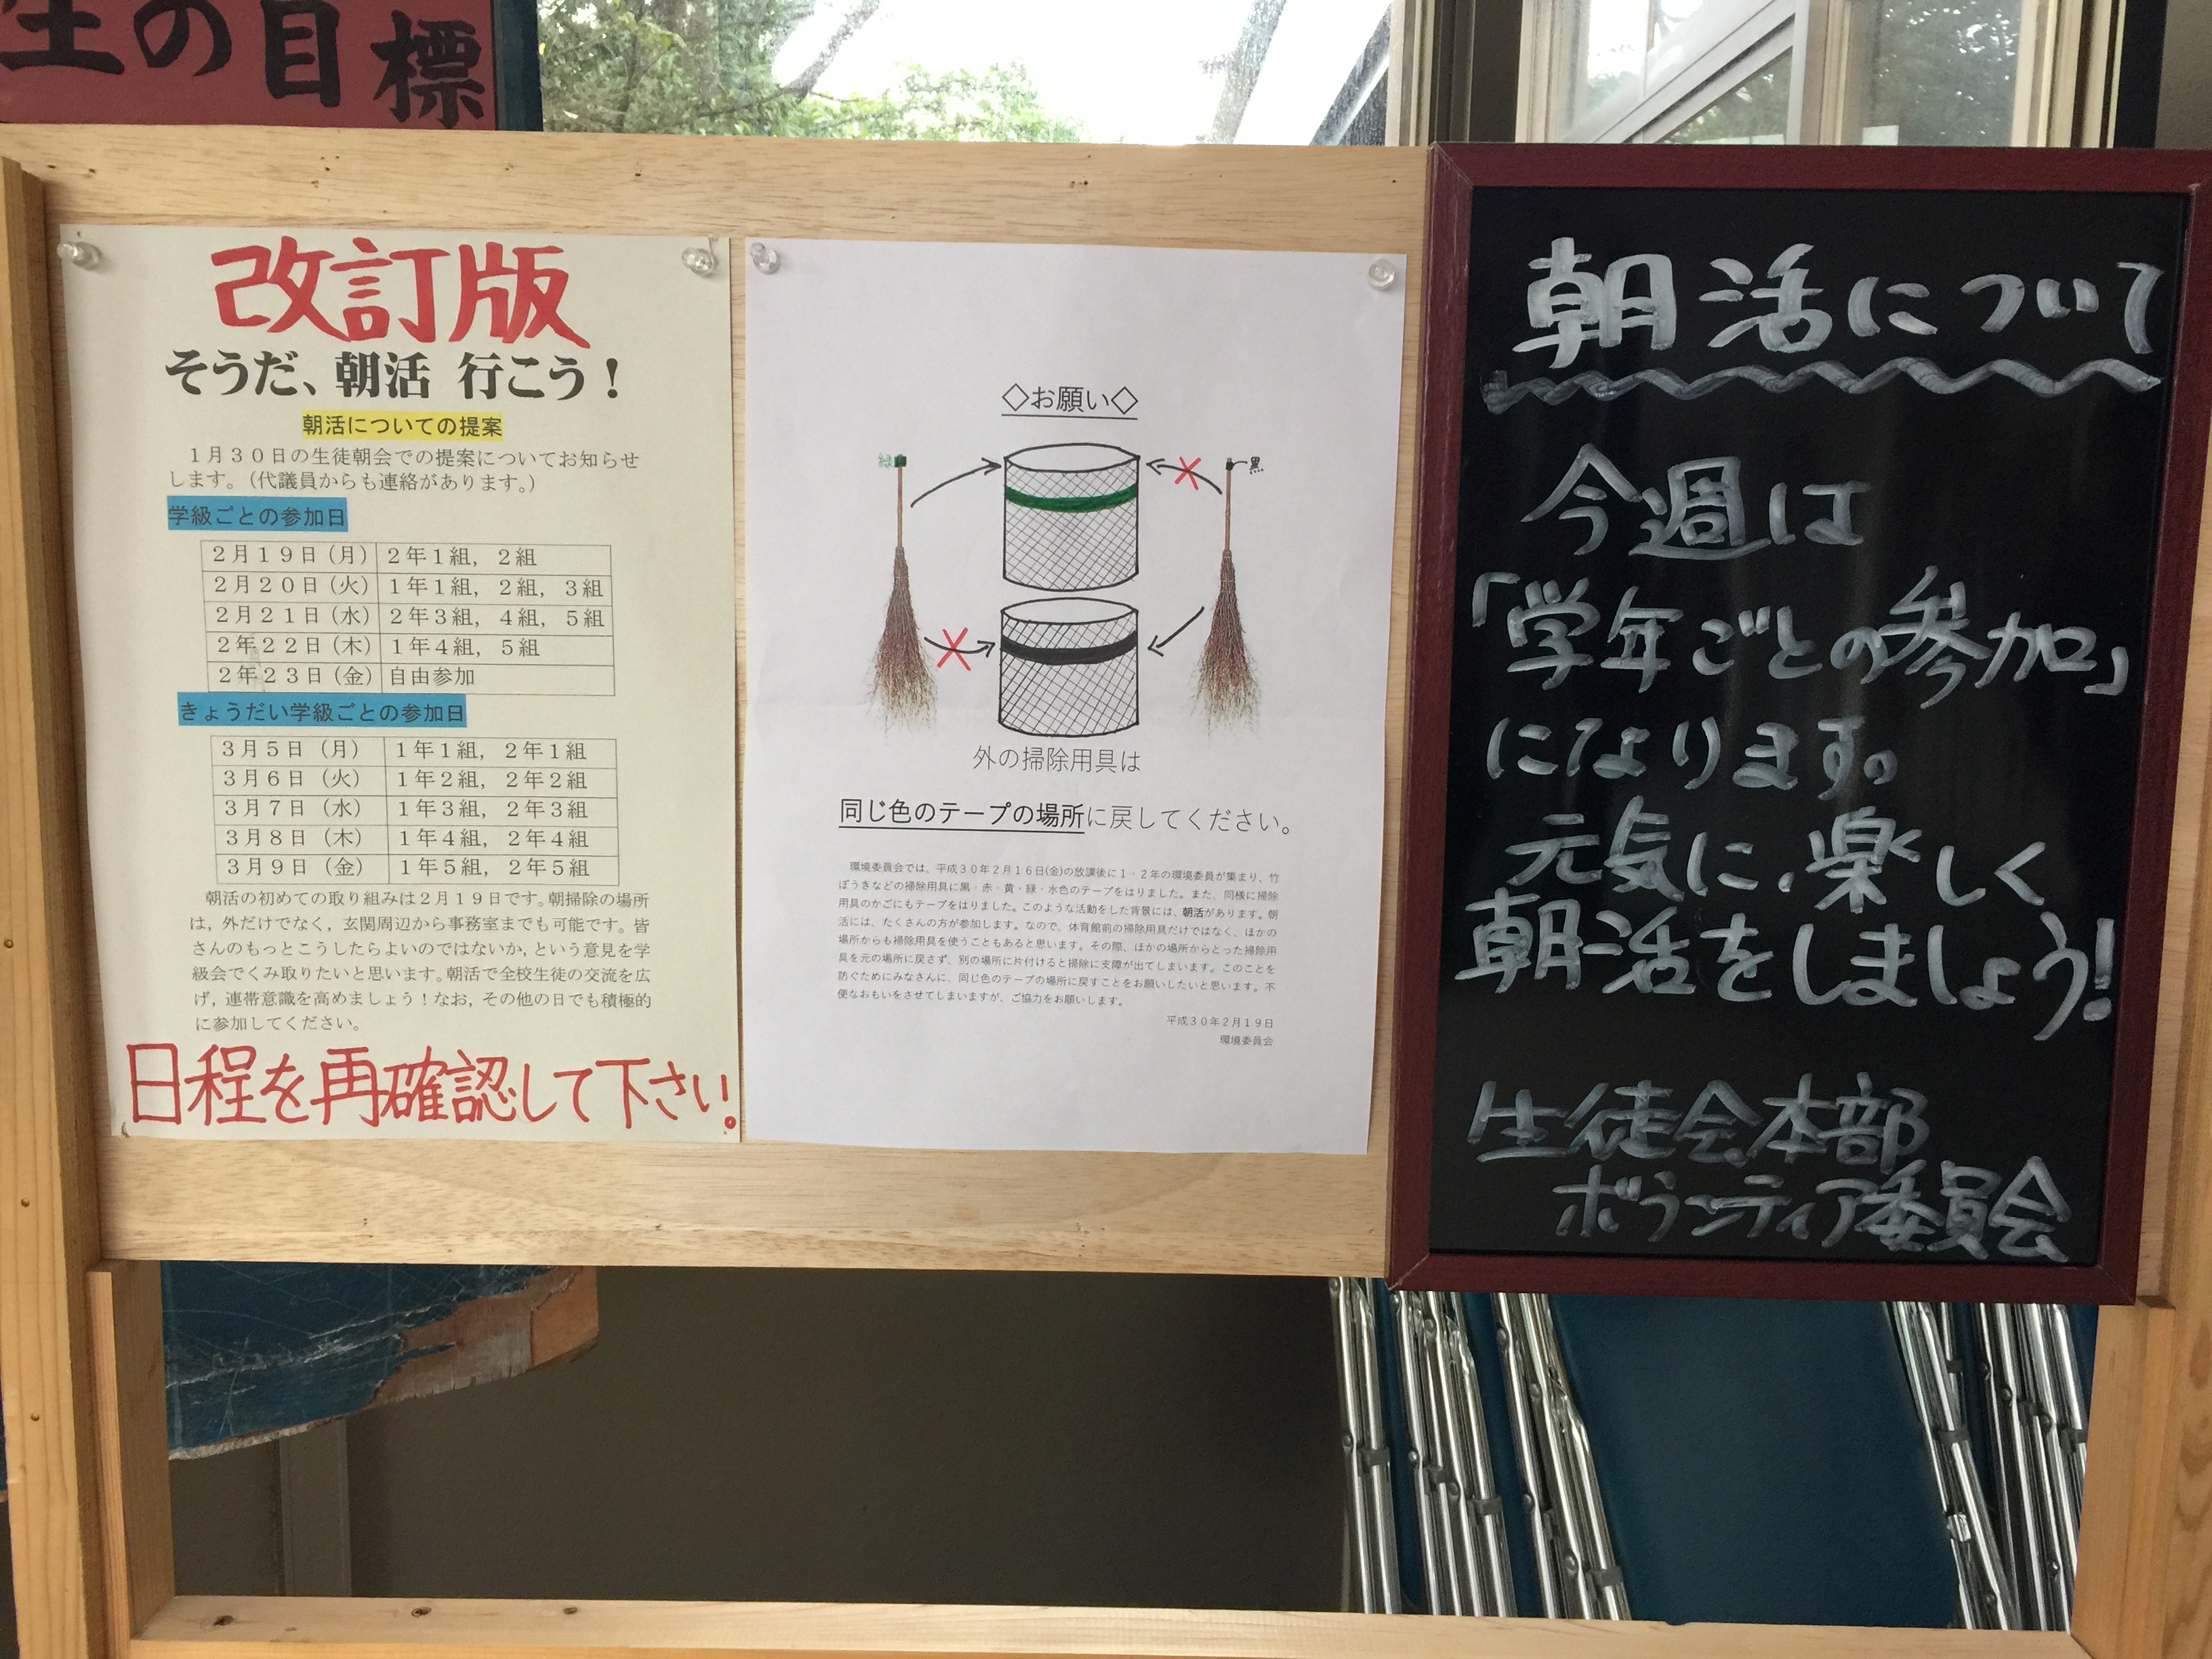 生の目標
改訂版
そうだ、朝活 行こう！
朝活についての提案
１月３０日の生徒朝会での提案についてお知らせ
します。（代議員からも連絡があります。）
学級ごとの参加日
２月１９日（月） ２年１組，２組
２月２０日（火） １年１組，２組，３組
２月２１日（水） ２年３組，４組，５組
２年２２日（木） １年４組，５組
２年２３日（金） 自由参加
きょうだい学級ごとの参加日
３月５日（月） １年１組，２年１組
３月６日（火） １年２組，２年２組
３月７日（水） １年３組，２年３組
３月８日（木） １年４組，２年４組
３月９日（金） １年５組，２年５組
朝活の初めての取り組みは２月１９日です。朝掃除の場所
は，外だけでなく，玄関周辺から事務室までも可能です。皆
さんのもっとこうしたらよいのではないか，という意見を学
級会でくみ取りたいと思います。朝活で全校生徒の交流を広
げ，連帯意識を高めましょう！なお，その他の日でも積極的
に参加してください。
日程を再確認して下さい。
◇お願い◇
緑
黒
外の掃除用具は
同じ色のテープの場所に戻してください。
環境委員会では、平成３０年２月１６日(金)の放課後に１・２年の環境委員が集まり、竹
ぼうきなどの掃除用具に黒・赤・黄・緑・水色のテープをはりました。また、同様に掃除
用具のかごにもテープをはりました。このような活動をした背景には、朝活があります。朝
活には、たくさんの方が参加します。なので、体育館前の掃除用具だけではなく、ほかの
場所からも掃除用具を使うこともあると思います。その際、ほかの場所からとった掃除用
具を元の場所に戻さず、別の場所に片付けると掃除に支障が出てしまいます。このことを
防ぐためにみなさんに、同じ色のテープの場所に戻すことをお願いしたいと思います。不
便なおもいをさせてしまいますが、ご協力をお願いします。
平成３０年２月１９日
環境委員会
朝活について
今週は
「学年ごとの参加」
になります。
元気に、楽しく
朝活をしましょう!
生徒会本部
ボランティア委員会